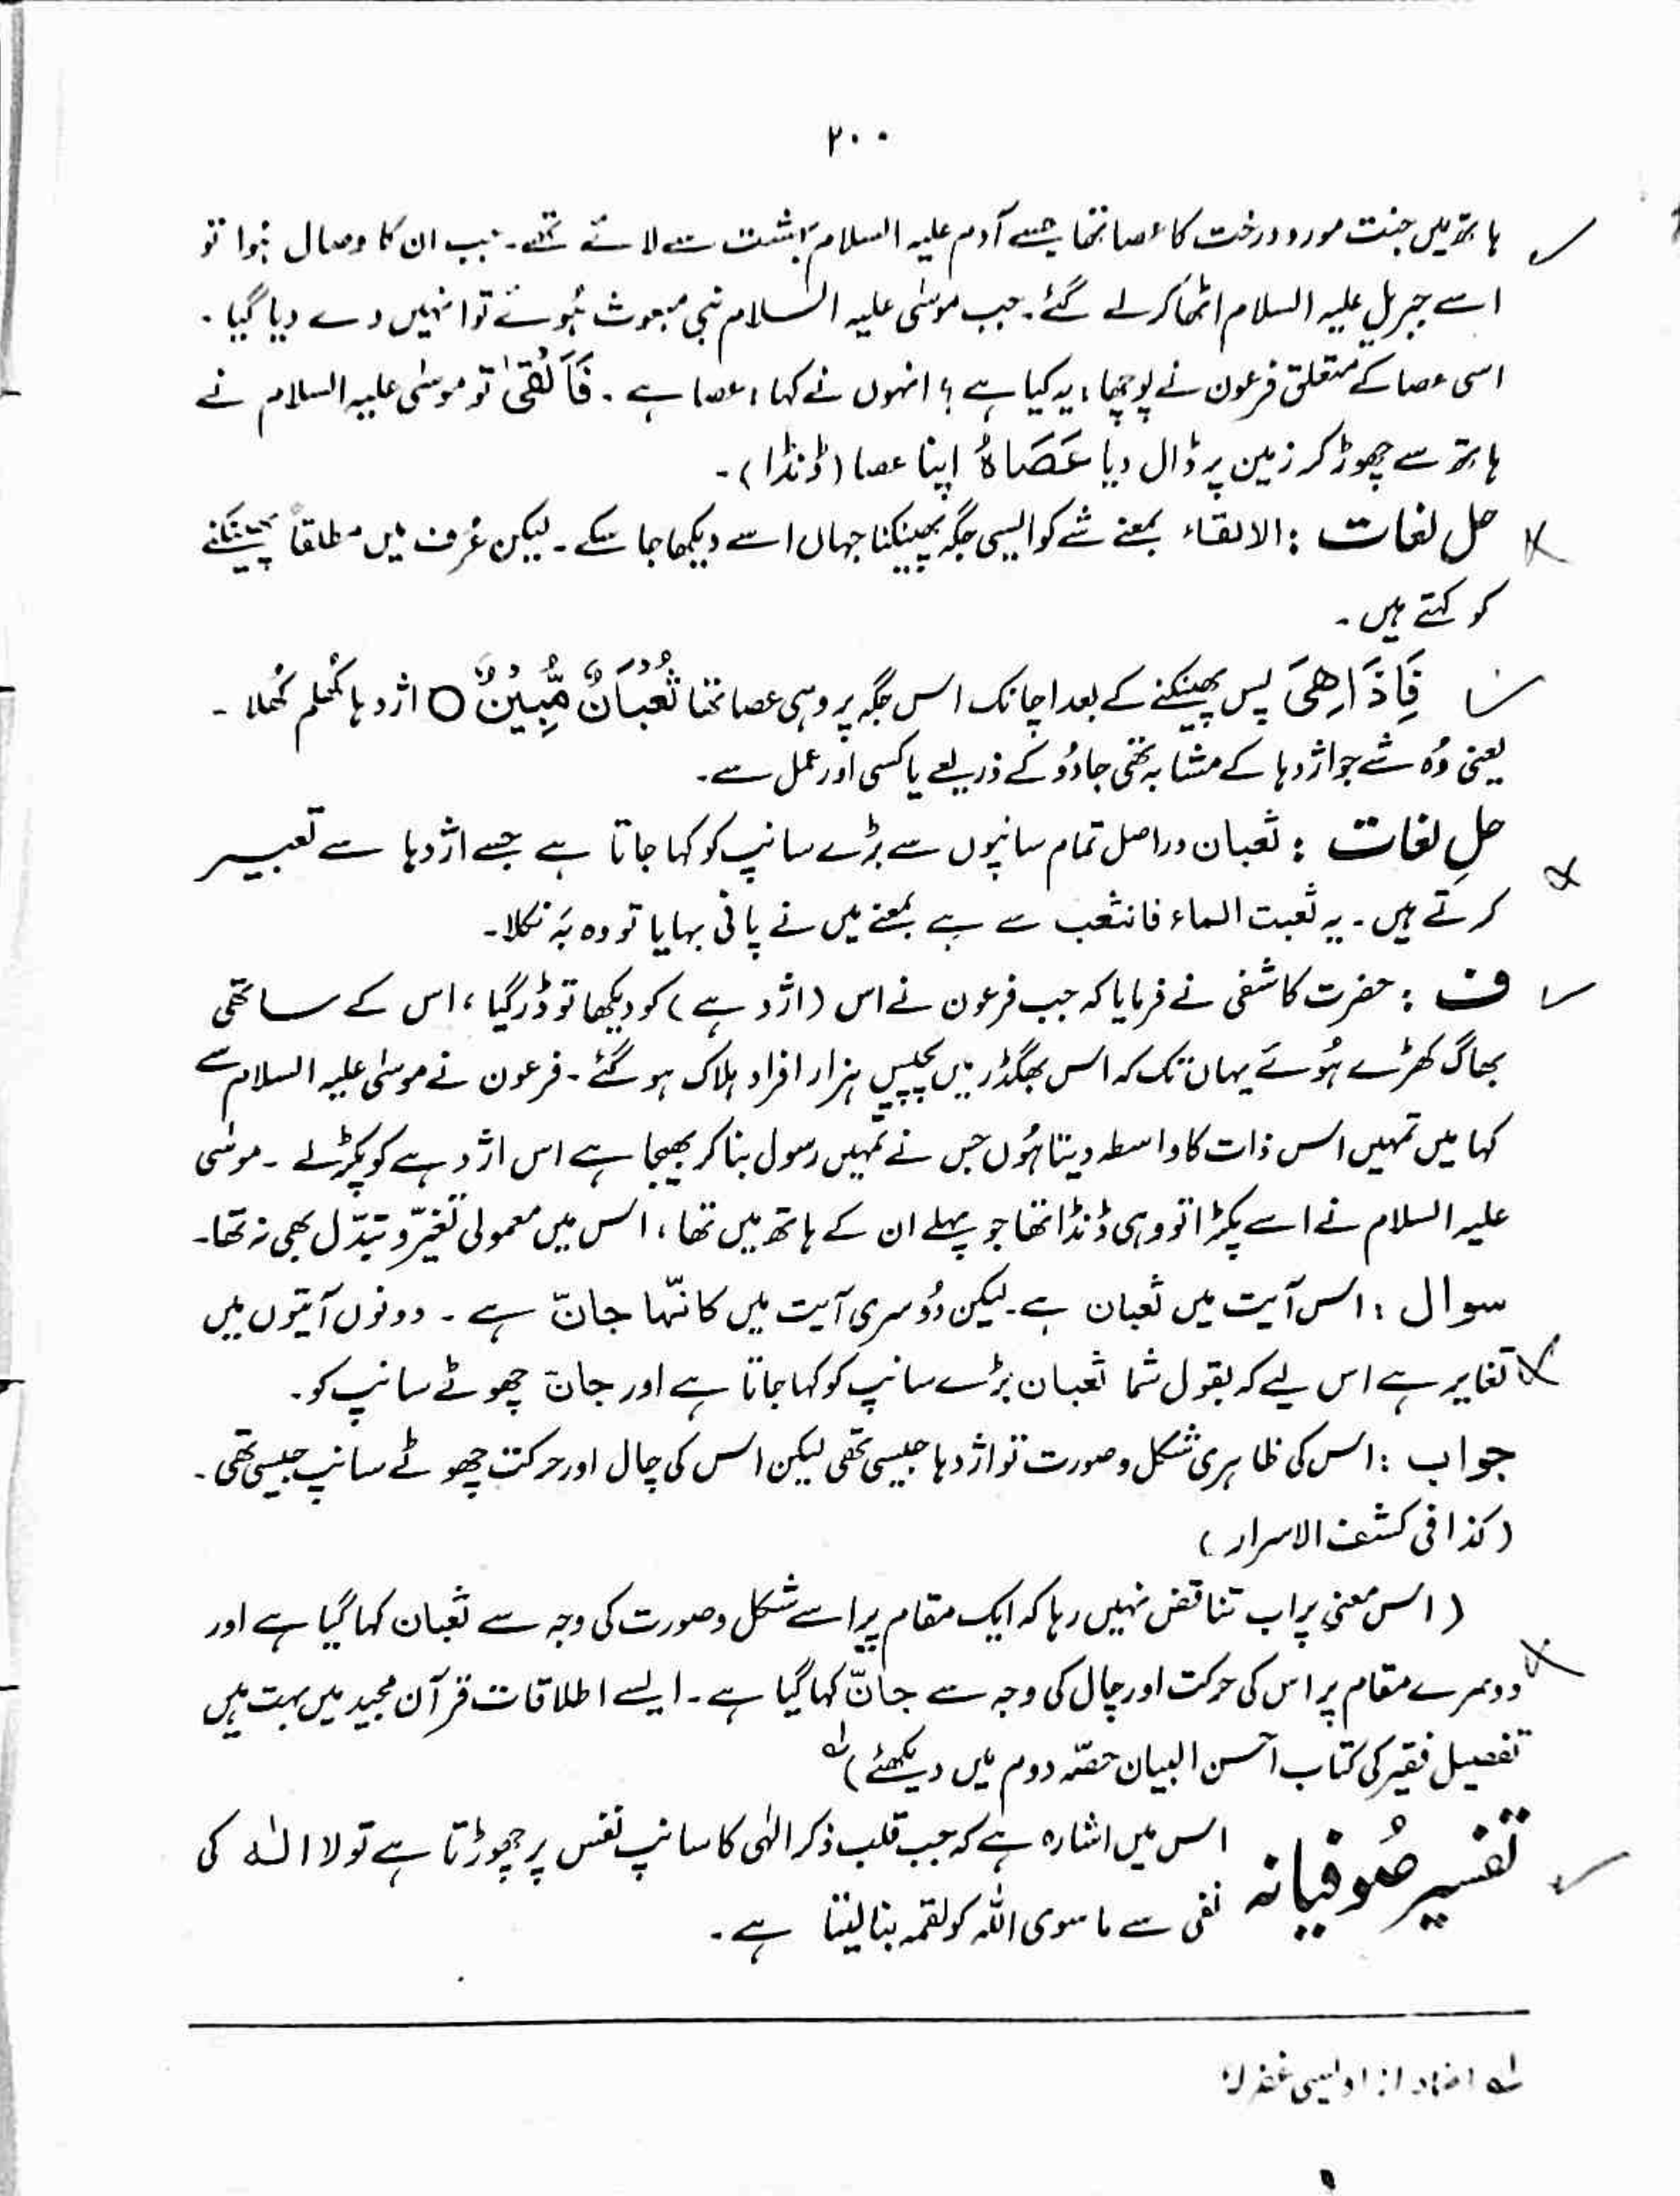 ۲۰۰
ہاتھ میں جنت مورد درخت کا عصا تھا جسے آدم علیہ السلام بہشت سے لائے تھے۔ جب ان کا وصال ہوا تو
اسے جبریل علیہ السلام اٹھا کر لے گئے۔ جب موسٰی علیہ السلام نبی مبعوث ہُوئے تو انہیں دے دیا گیا۔
اسی عصا کے متعلق فرعون نے پوچھا، یہ کیا ہے؟ انہوں نے کہا، عصا ہے۔ فَاَلْقٰی تو موسٰی علیہ السلام نے
ہاتھ سے چھوڑ کر زمین پر ڈال دیا عَصَاہُ اپنا عصا (ڈنڈا)۔
حل لغات : الالقاء بمعنے شے کو ایسی جگہ پھینکنا جہاں اسے دیکھا جا سکے۔ لیکن عُرف میں مطلقاً پھینکنے
کو کہتے ہیں۔
فَاِذَا ھِیَ پس پھینکنے کے بعد اچانک اس جگہ پر وہی عصا تھا ثُعْبَانٌ مُّبِیْنٌ ○ اژدہا کھُلم کھُلا۔
یعنی وُہ شے جو اژدہا کے مشابہ تھی جادُو کے ذریعے یا کسی اور عمل سے۔
حلِ لغات : ثعبان دراصل تمام سانپوں سے بڑے سانپ کو کہا جاتا ہے جسے اژدہا سے تعبیر
کرتے ہیں۔ یہ ثعبت الماء فانثعب سے ہے بمعنے میں نے پانی بہایا تو وہ بَہ نکلا۔
ف : حضرت کاشفی نے فرمایا کہ جب فرعون نے اس (اژدہے) کو دیکھا تو ڈر گیا، اس کے ساتھی
بھاگ کھڑے ہُوئے یہاں تک کہ اس بھگڈر میں پچیس ہزار افراد ہلاک ہو گئے۔ فرعون نے موسٰی علیہ السلام سے
کہا میں تمہیں اس ذات کا واسطہ دیتا ہُوں جس نے تمہیں رسول بنا کر بھیجا ہے اس اژدہے کو پکڑ لے۔ موسٰی
علیہ السلام نے اسے پکڑا تو وہی ڈنڈا تھا جو پہلے ان کے ہاتھ میں تھا، اس میں معمولی تغیّر و تبدّل بھی نہ تھا۔
سوال : اس آیت میں ثعبان ہے۔ لیکن دُوسری آیت میں کانّہا جانّ ہے۔ دونوں آیتوں میں
تغایر ہے اس لیے کہ بقول شما ثعبان بڑے سانپ کو کہا جاتا ہے اور جانّ چھوٹے سانپ کو۔
جواب : اس کی ظاہری شکل و صورت تو اژدہا جیسی تھی لیکن اس کی چال اور حرکت چھوٹے سانپ جیسی تھی۔
(کذا فی کشف الاسرار)
(اس معنی پر اب تناقض نہیں رہا کہ ایک مقام پر اسے شکل و صورت کی وجہ سے ثعبان کہا گیا ہے اور
دوسرے مقام پر اس کی حرکت اور چال کی وجہ سے جانّ کہا گیا ہے۔ ایسے اطلاقات قرآن مجید میں بہت ہیں
تفصیل فقیر کی کتاب احسن البیان حصّہ دوم میں دیکھئے) لہ
تفسیر صُوفیانہ اس میں اشارہ ہے کہ جب قلب ذکر الٰہی کا سانپ نفس پر چھوڑتا ہے تو لا الٰہ کی
نفی سے ما سوی اللہ کو لقمہ بنا لیتا ہے۔
لہ اضافہ از اویسی غفرلہٗ